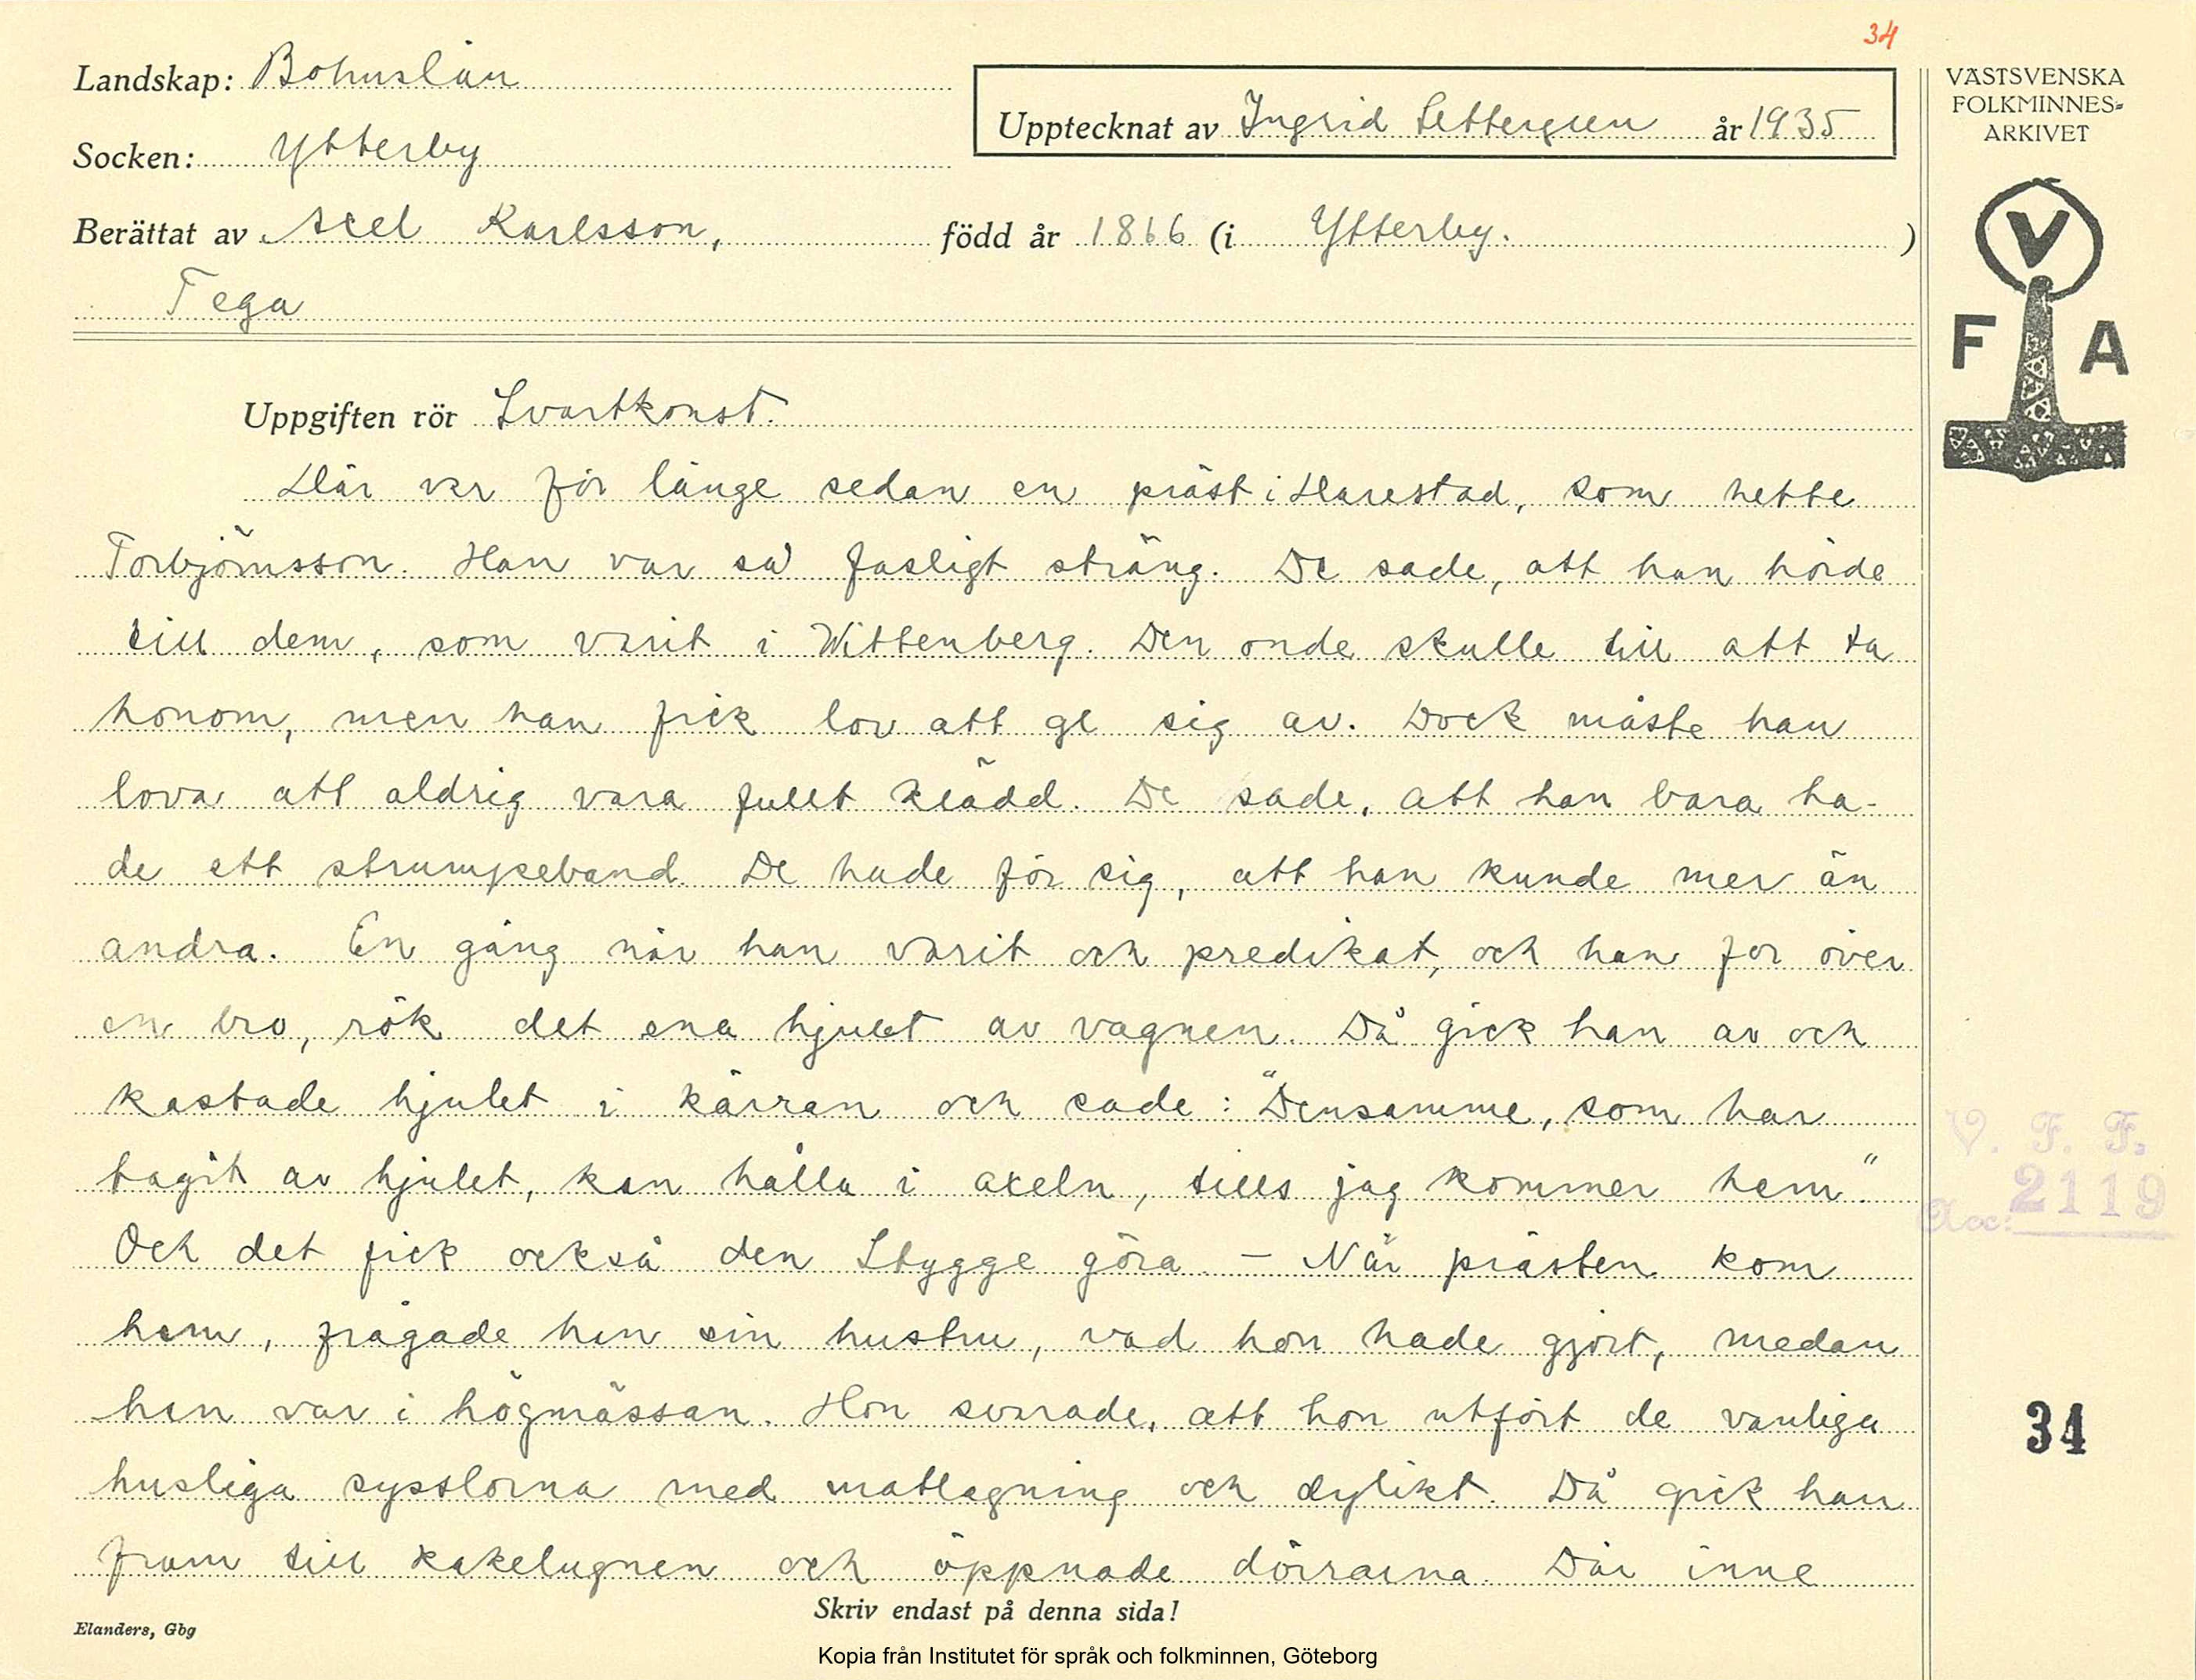 34
Landskap: Bohuslän
Socken: Ytterby
Upptecknat av Ingrid Settergren år 1935
Berättat av Axel Karlsson, född år 1866 (i Ytterby. )
Tega
VÄSTSVENSKA
FOLKMINNES-
ARKIVET
V
F A
Uppgiften rör Svartkonst.
Här var för länge sedan en präst i Harestad, som hette
Torbjörnsson. Han var så fasligt sträng. De sade, att han hörde
till dem, som varit i Wittenberg. Den onde skulle till att ta
honom, men han fick lov att ge sig av. Dock måste han
lova att aldrig vara fullt klädd. De sade, att han bara ha-
de ett strumpeband. De hade för sig, att han kunde mer än
andra. En gång när han varit och predikat, och han for över
en bro, rök det ena hjulet av vagnen. Då gick han av och
kastade hjulet i kärran och sade: "Densamme, som har
tagit av hjulet, kan hålla i axeln, tills jag kommer hem."
Och det fick också den Stygge göra. – När prästen kom
hem, frågade han sin hustru, vad hon hade gjort, medan
han var i högmässan. Hon svarade, att hon utfört de vanliga
husliga sysslorna med matlagning och dylikt. Då gick han
fram till kakelugnen och öppnade dörrarna. Där inne
V. F. F.
Acc: 2119
34
Skriv endast på denna sida!
Elanders, Gbg
Kopia från Institutet för språk och folkminnen, Göteborg